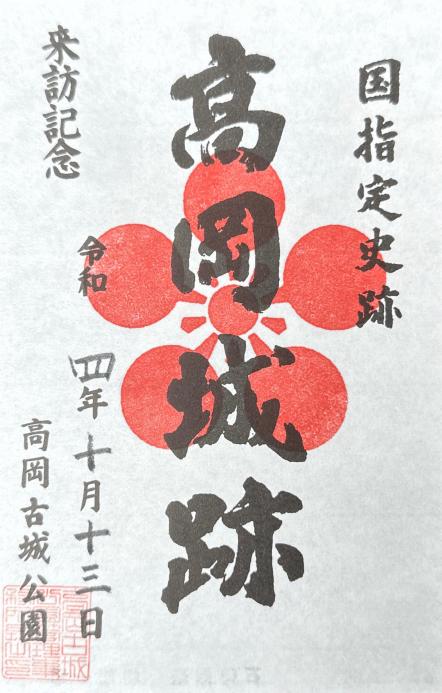 国指定史跡
高岡城跡
来訪記念
令和四年十月十三日
高岡古城公園